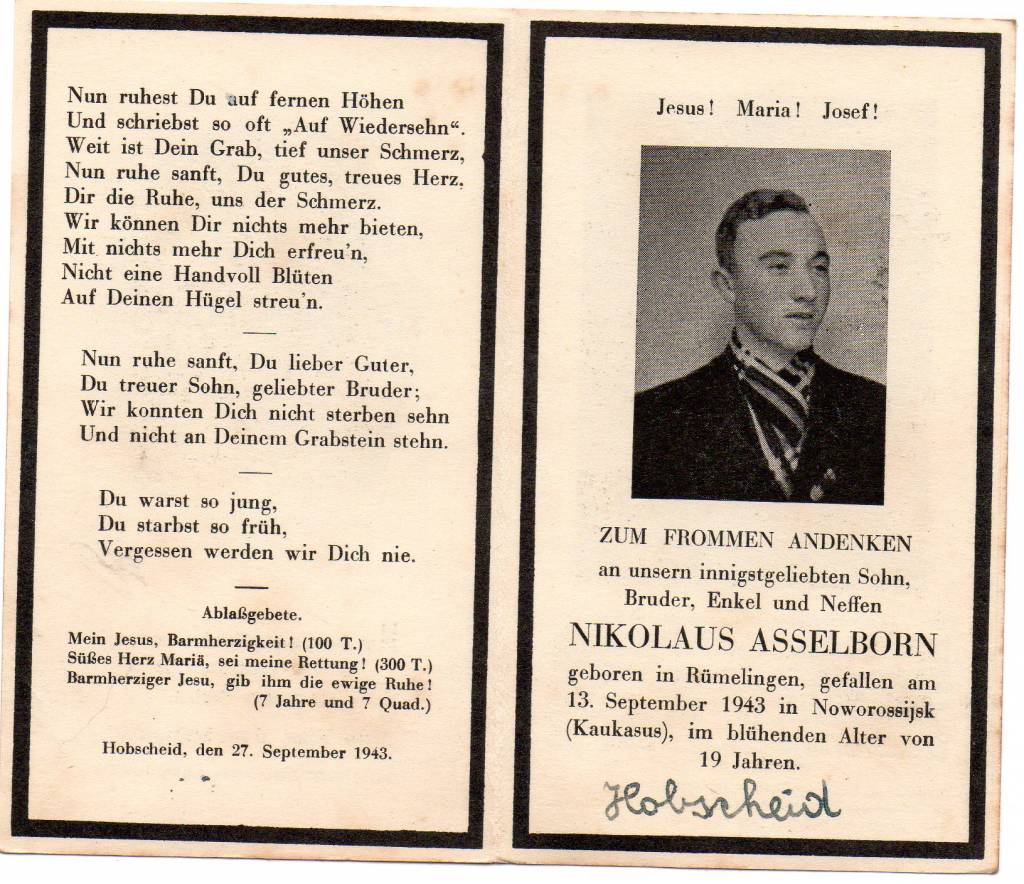 Nun ruhest Du auf fernen Höhen
Und schriebst so oft „Auf Wiedersehn“.
Weit ist Dein Grab, tief unser Schmerz,
Nun ruhe sanft, Du gutes, treues Herz,
Dir die Ruhe, uns der Schmerz.
Wir können Dir nichts mehr bieten,
Mit nichts mehr Dich erfreu'n,
Nicht eine Handvoll Blüten
Auf Deinen Hügel streu'n.
Nun ruhe sanft, Du lieber Guter,
Du treuer Sohn, geliebter Bruder;
Wir konnten Dich nicht sterben sehn
Und nicht an Deinem Grabstein stehn.
Du warst so jung,
Du starbst so früh,
Vergessen werden wir Dich nie.
Ablaßgebete.
Mein Jesus, Barmherzigkeit! (100 T.)
Süßes Herz Mariä, sei meine Rettung! (300 T.)
Barmherziger Jesu, gib ihm die ewige Ruhe!
(7 Jahre und 7 Quad.)
Hobscheid, den 27. September 1943.
Jesus! Maria! Josef!
ZUM FROMMEN ANDENKEN
an unsern innigstgeliebten Sohn,
Bruder, Enkel und Neffen
NIKOLAUS ASSELBORN
geboren in Rümelingen, gefallen am
13. September 1943 in Noworossijsk
(Kaukasus), im blühenden Alter von
19 Jahren.
Hobscheid